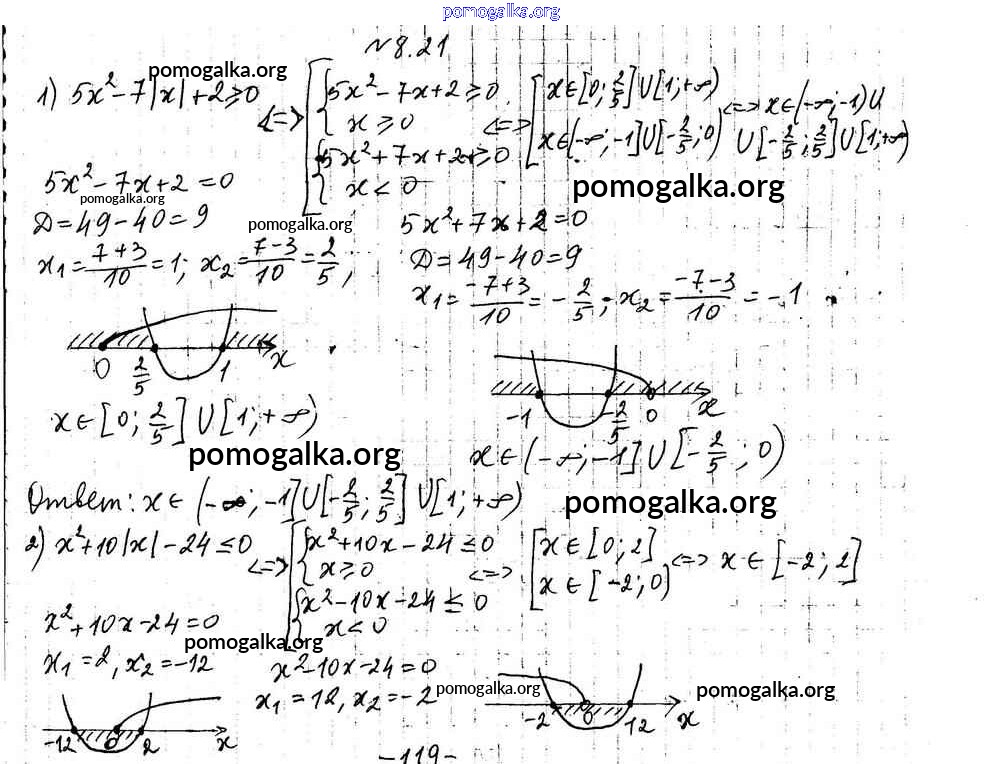 pomogalka.org
№8.21
pomogalka.org
1) 5x²-7|x|+2≥0 <=> [ { 5x²-7x+2≥0, x≥0 { 5x²+7x+2≥0, x<0 <=> [ x∈[0; 2/5]∪[1;+∞) x∈(-∞;-1]∪[-2/5; 0) <=> x∈(-∞;-1)∪
∪[-2/5; 2/5]∪[1;+∞)
pomogalka.org
5x²-7x+2=0
pomogalka.org
D=49-40=9
pomogalka.org
x₁=(7+3)/10=1; x₂=(7-3)/10=2/5;
5x²+7x+2=0
D=49-40=9
x₁=(-7+3)/10=-2/5; x₂=(-7-3)/10=-1
0 2/5 1 x
-1 -2/5 0 x
x∈[0; 2/5]∪[1;+∞)
x∈(-∞;-1]∪[-2/5; 0)
pomogalka.org
Ответ: x∈(-∞;-1]∪[-2/5; 2/5]∪[1;+∞)
pomogalka.org
2) x²+10|x|-24≤0 <=> [ { x²+10x-24≤0 x≥0 { x²-10x-24≤0 x<0 <=> [ x∈[0; 2] x∈[-2; 0) <=> x∈[-2; 2]
x²+10x-24=0
pomogalka.org
x₁=2, x₂=-12
x²-10x-24=0
x₁=12, x₂=-2
pomogalka.org
pomogalka.org
-12 0 2 x
-2 0 12 x
-119-